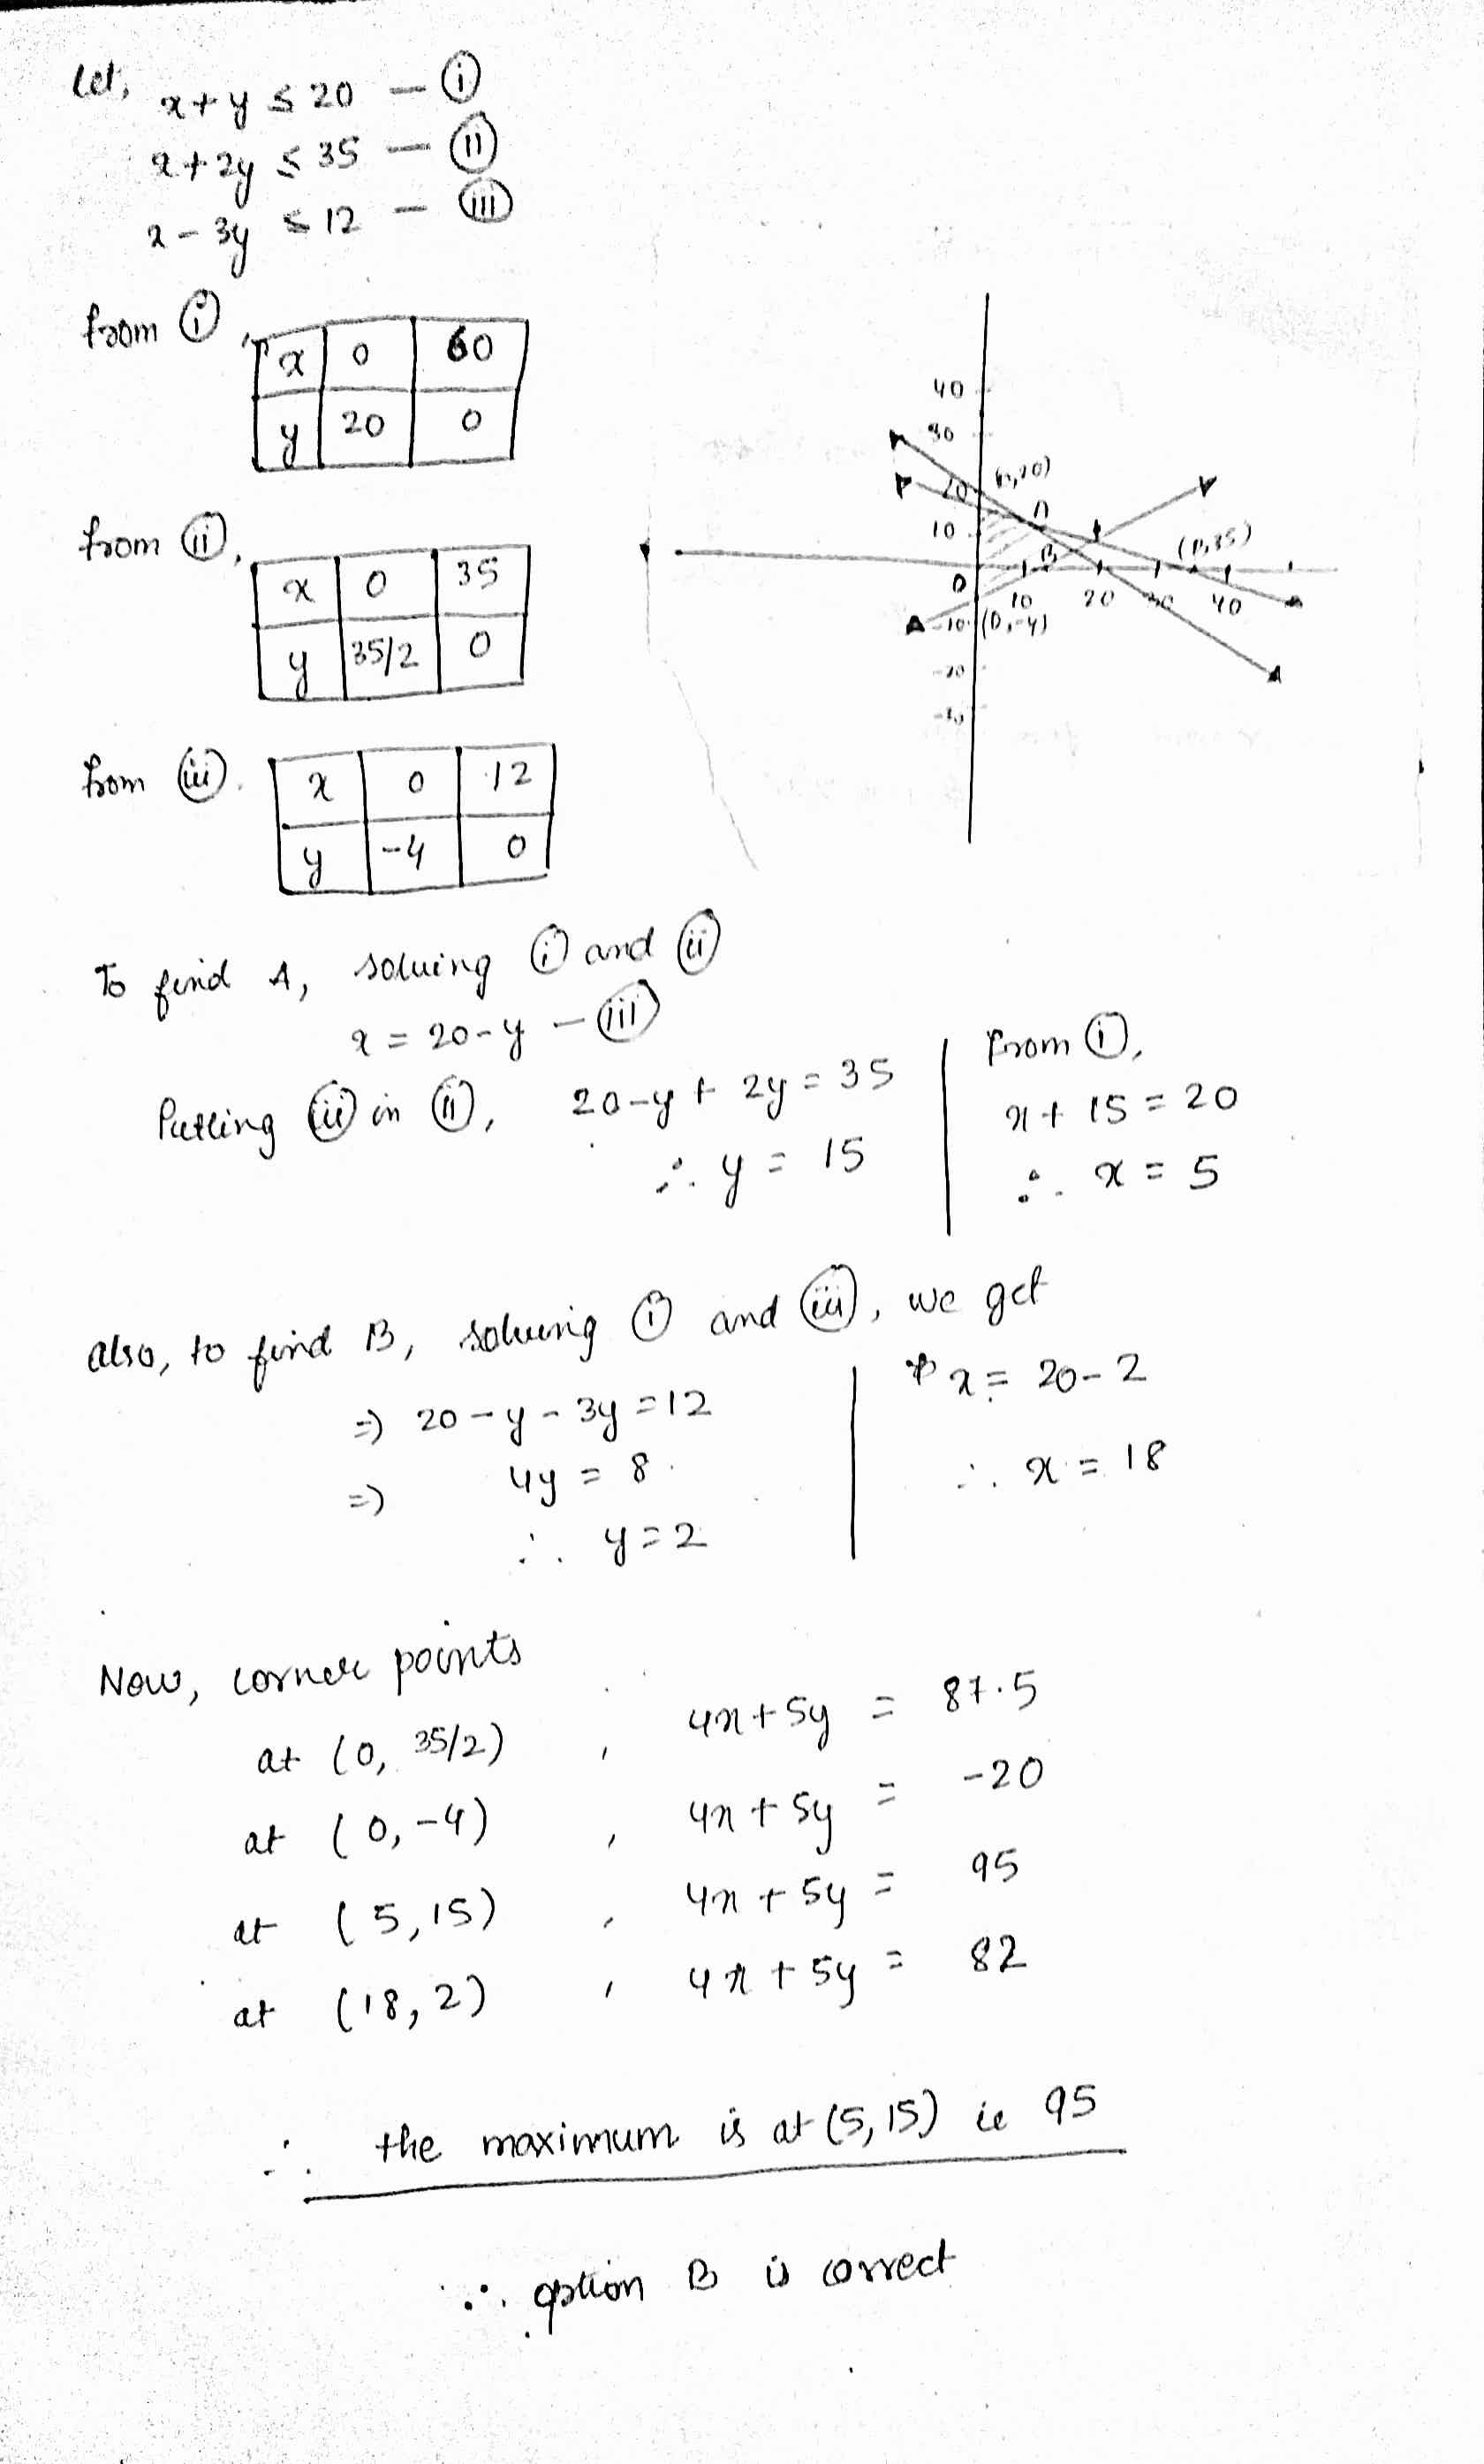 Let, x + y ≤ 20 — (i)
x + 2y ≤ 35 — (ii)
x - 3y ≤ 12 — (iii)
from (i),
x 0 60
y 20 0
from (ii),
x 0 35
y 35/2 0
from (iii).
x 0 12
y -4 0
40
30
20 (0,20)
10 A
B (0,35)
0
10 20 30 40
-10 (0,-4)
-20
-30
To find A, solving (i) and (ii)
x = 20 - y — (iii)
Putting (iii) in (ii), 20 - y + 2y = 35
∴ y = 15
From (i),
x + 15 = 20
∴ x = 5
also, to find B, solving (i) and (iii), we get
⇒ 20 - y - 3y = 12
⇒ 4y = 8
∴ y = 2
x = 20 - 2
∴ x = 18
Now, corner points
at (0, 35/2) , 4x + 5y = 87.5
at (0, -4) , 4x + 5y = -20
at (5, 15) , 4x + 5y = 95
at (18, 2) , 4x + 5y = 82
∴ the maximum is at (5, 15) ie 95
∴ option B is correct